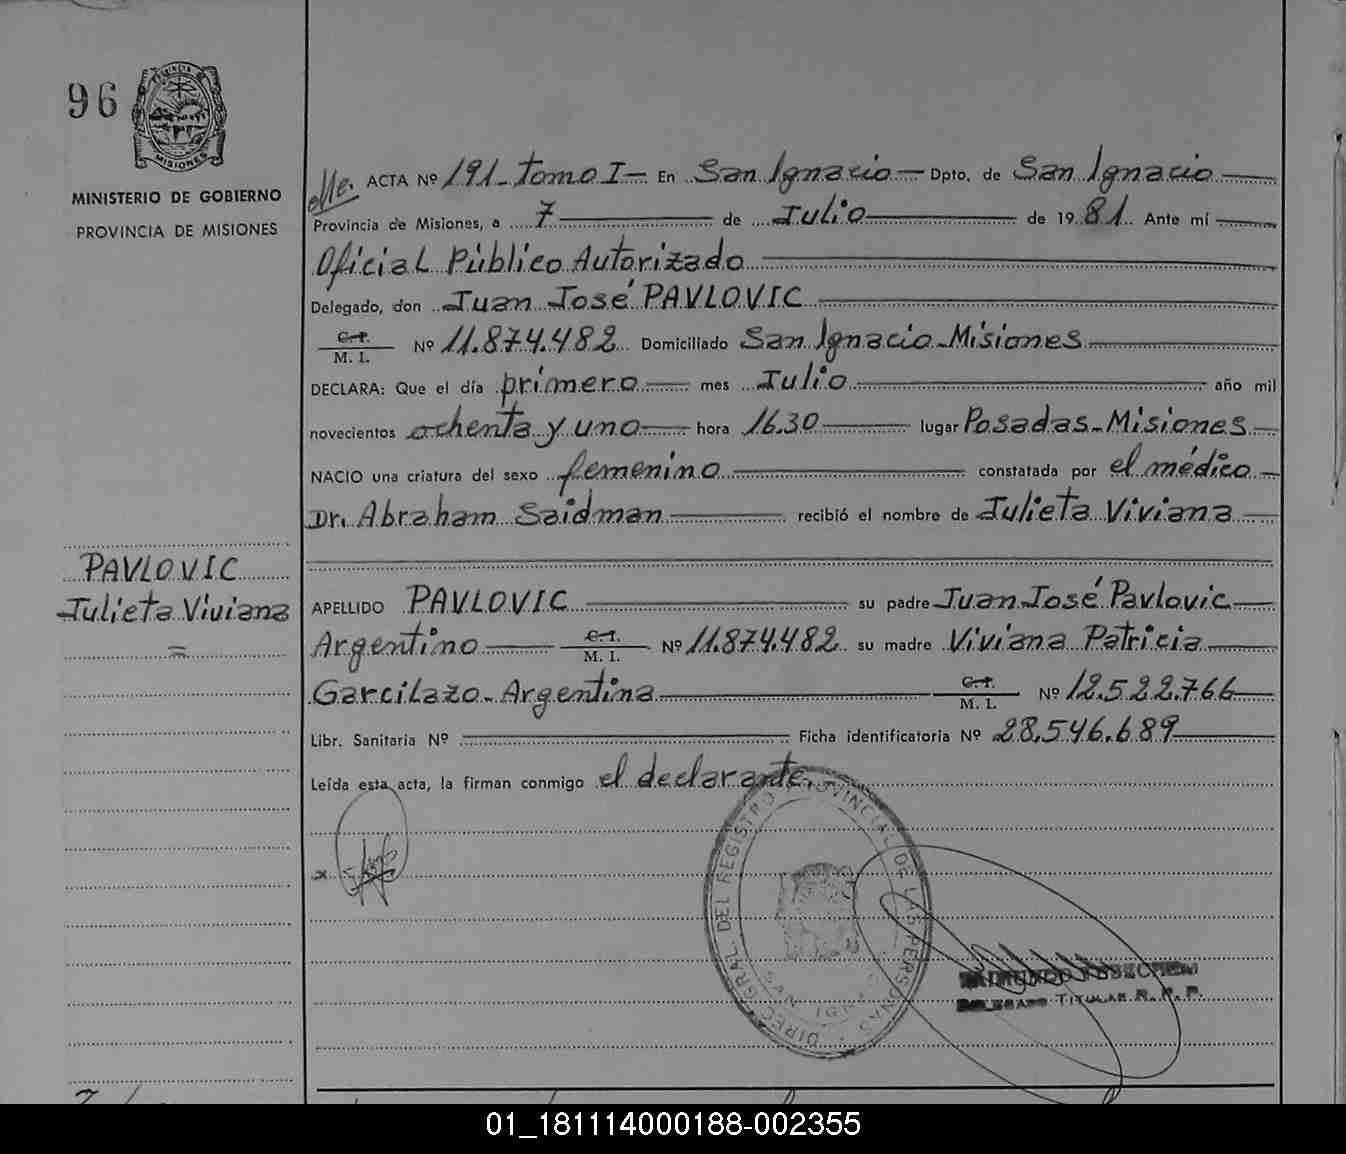 96
PROVINCIA DE
MISIONES
MINISTERIO DE GOBIERNO
PROVINCIA DE MISIONES
PAVLOVIC
Julieta Viviana
=
ACTA Nº 191 - Tomo I - En San Ignacio - Dpto. de San Ignacio
Provincia de Misiones, a 7 de Julio de 1981 Ante mí
Oficial Público Autorizado
Delegado, don Juan José PAVLOVIC
C. I.
M. I. Nº 11.874.482 Domiciliado San Ignacio - Misiones
DECLARA: Que el día primero mes Julio año mil
novecientos ochenta y uno hora 16.30 lugar Posadas - Misiones
NACIO una criatura del sexo femenino constatada por el médico
Dr. Abraham Saidman recibió el nombre de Julieta Viviana
APELLIDO PAVLOVIC su padre Juan José Pavlovic
Argentino C. I. M. I. Nº 11.874.482 su madre Viviana Patricia
Garcilazo - Argentina C. I. M. I. Nº 12.522.766
Libr. Sanitaria Nº Ficha identificatoria Nº 28.546.689
Leída esta acta, la firman conmigo el declarante.
DIREC. GRAL. DEL REGISTRO PROVINCIAL DE LAS PERSONAS
SAN IGNACIO
DELEGADO TITULAR R. P. P.
01_181114000188-002355